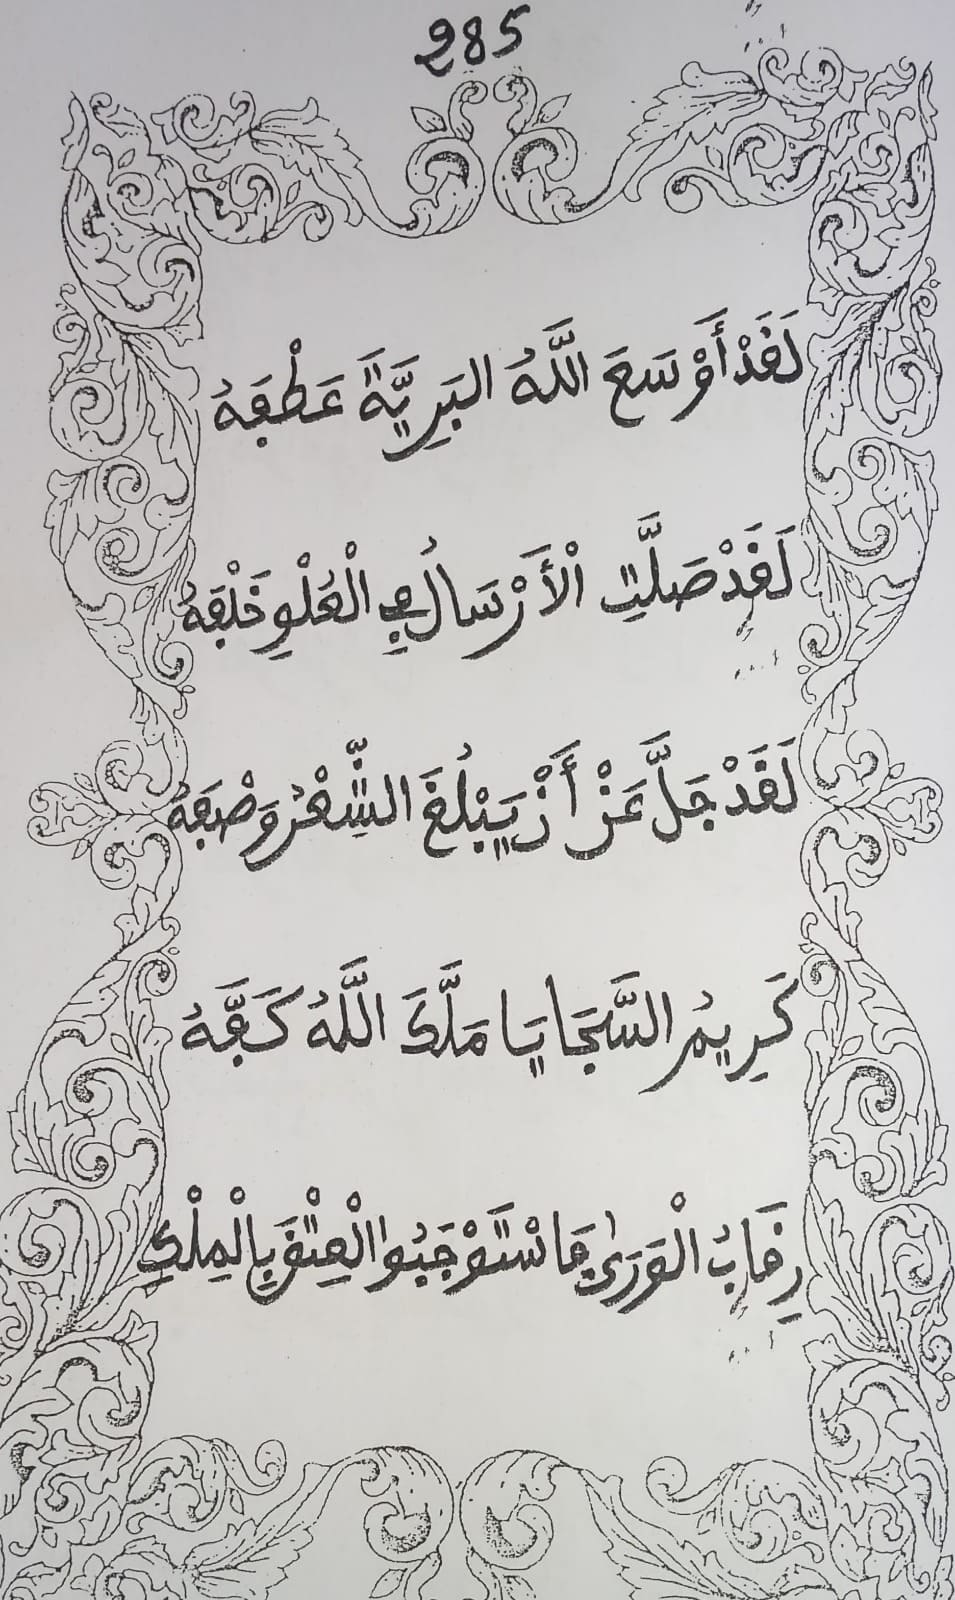 285
لَقَدْ أَوْسَعَ اللَّهُ البَرِيَّةَ عَطْفَهُ
لَقَدْ صَلَّتِ الْأَرْسَالُ فِي الْعُلْوِ خَلْفَهُ
لَقَدْ جَلَّ عَنْ أَنْ يَبْلُغَ الشِّعْرُ وَصْفَهُ
كَرِيمُ السَّجَايَا مَلَّكَ اللَّهُ كَفَّهُ
رِقَابُ الْوَرَىٰ فَاسْتَوْجَبُوا الْعِتْقَ بِالْمِلْكِ